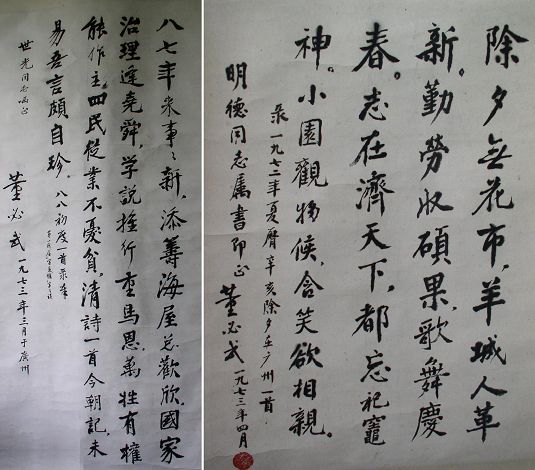 八七年来事〻新，添籌海屋总歡欣，國家
治理逢堯舜，学説推行重馬恩，萬姓有權
能作主，四民從業不憂貧，清詩一首今朝記，未
易吾言頗自珍。八八初度一首录奉
世光同志嘱正
董必武 一九七三年三月于廣州
除夕無花市，羊城人革
新。勤勞收碩果，歌舞慶
春。志在濟天下，都忘祀竈
神。小園觀物候，含笑欲相親。
录一九七二年夏曆辛亥除夕在广州一首
明德同志属書即正
董必武 一九七三年四月